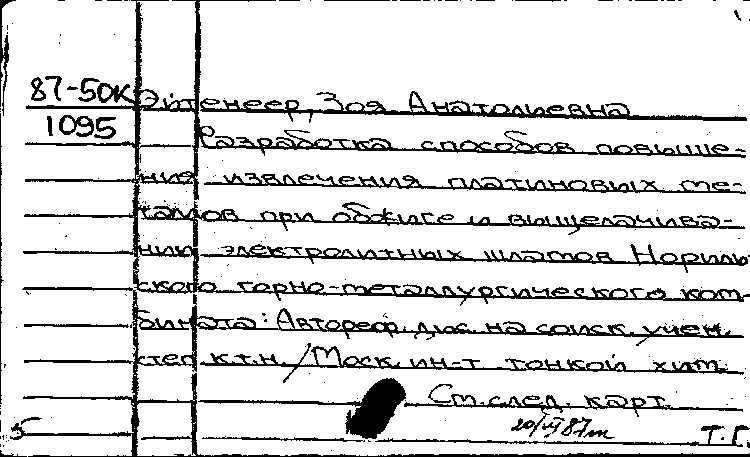 87-50К Эйтенеер, Зоя Анатольевна
1095 Разработка способов повыше-
ния извлечения платиновых ме-
таллов при обжиге и выщелачива-
нии электролитных шламов Нориль
ского горно-металлургического ком-
бината: Автореф. дис. на соиск. учен.
степ к.т.н. / Моск. ин-т тонкой хим.
Ст. след. карт.
5 Т.Г.